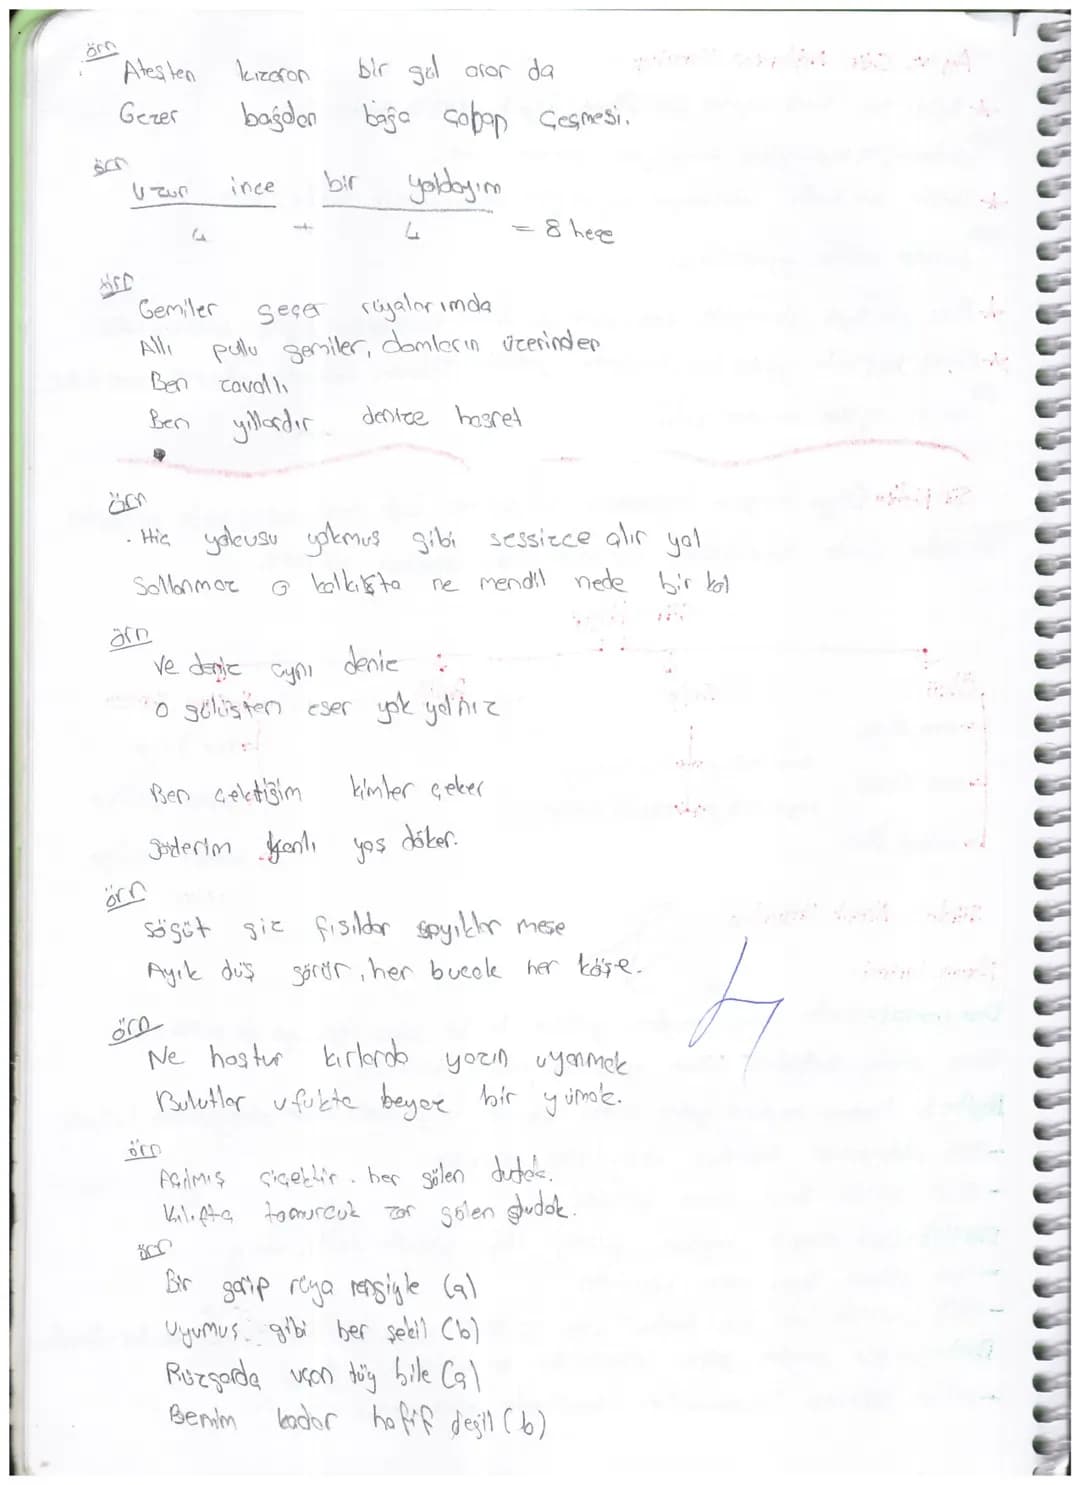 örn
Ateşten kızaran bir gül arar da
Gezer bağdan bağa çoban Çeşmesi.
örn
Uzun ince bir yoldayım
4 + 4 = 8 hece
örn
Gemiler geçer rüyalarımda
Allı pullu gemiler, damların üzerinden
Ben zavallı
Ben yıllardır denize hasret
örn
. Hiç yolcusu yokmuş gibi sessizce alır yol
Sallanmaz o kalkışta ne mendil nede bir kol
örn
Ve deniz aynı deniz
O gülüşten eser yok yalnız
Ben çektiğim kimler çeker
gözlerim kanlı yaş döker.
örn
söğüt giz fısıldar meşe
Ayık düş görür, her bucak her köşe.
örn
Ne hoştur kırlarda yazın uyanmak
Bulutlar ufukta beyaz bir yumak.
örn
Açılmış çiçektir. her gülen dudak.
tomurcuk zor gülen dudak.
örn
Bir garip rüya rengiyle (a)
Uyumuş gibi her şekil (b)
Rüzgarda uçan tüy bile (a)
Benim kadar hafif değil (b)